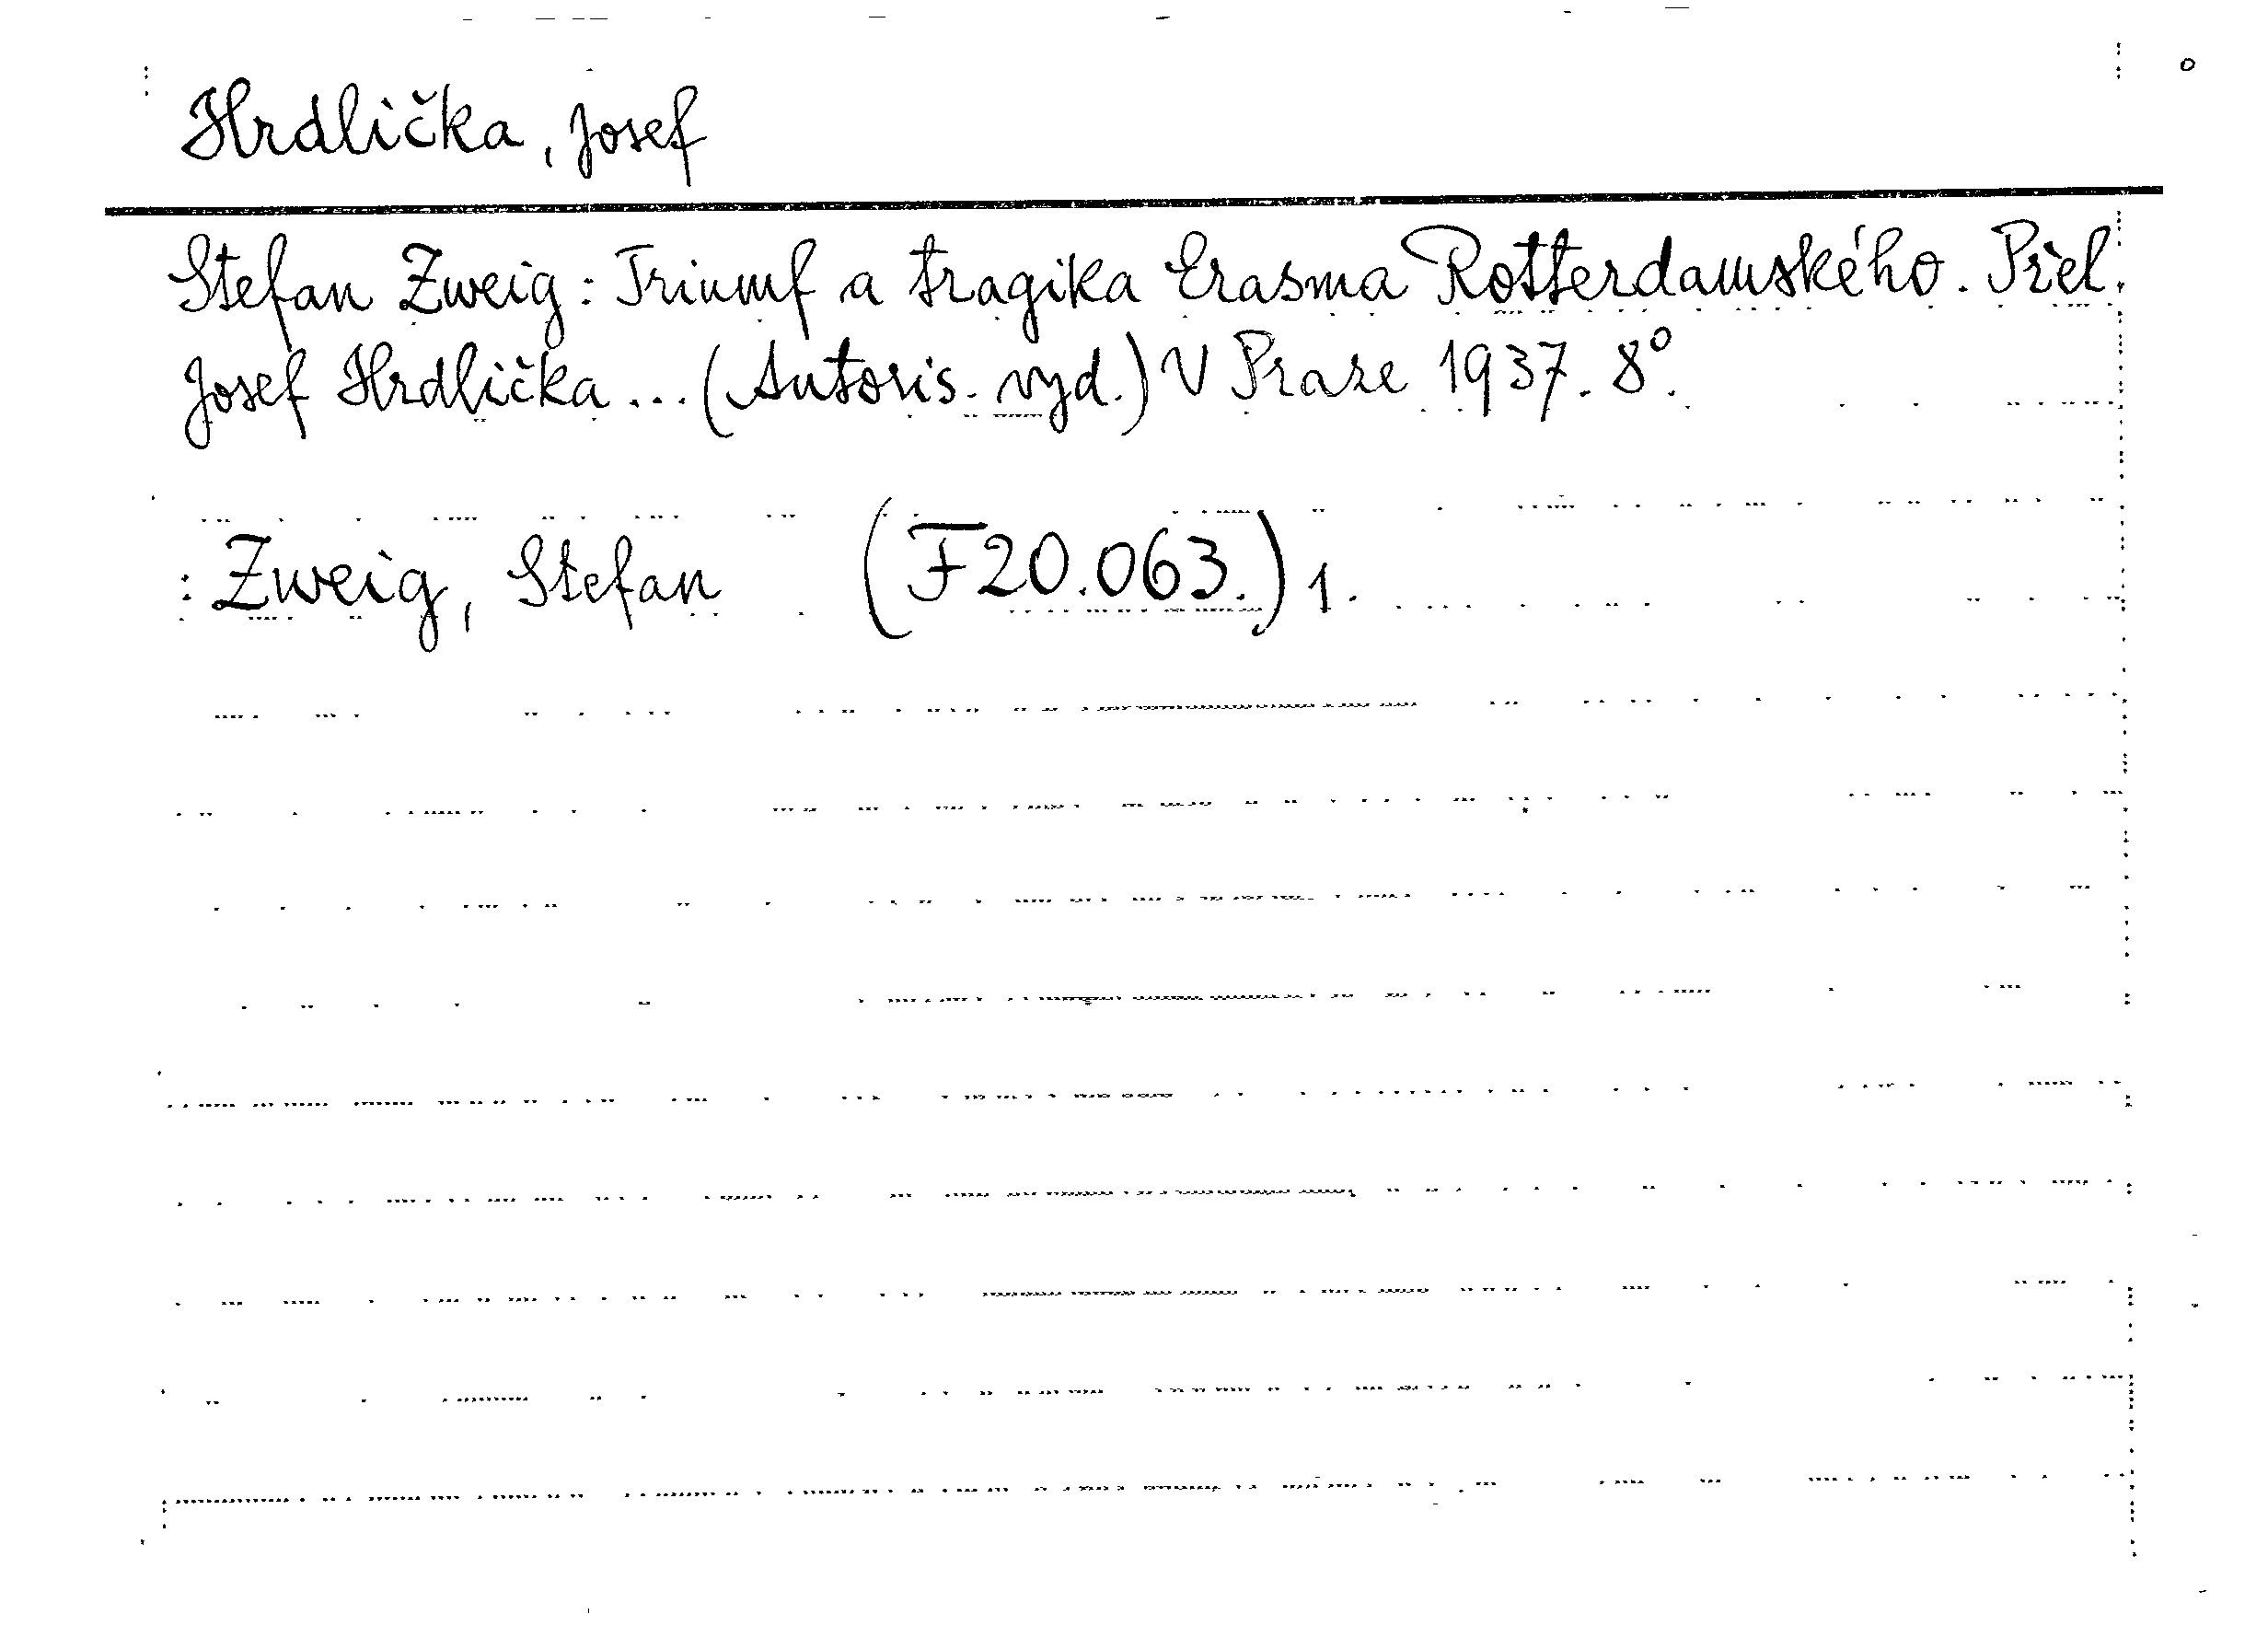 Hrdlička, Josef
Stefan Zweig: Triumf a tragika Erasma Rotterdamského. Přel.
Josef Hrdlička... (Autoris. vyd.) V Praze 1937. 8°.
: Zweig, Stefan (F20.063.) 1.